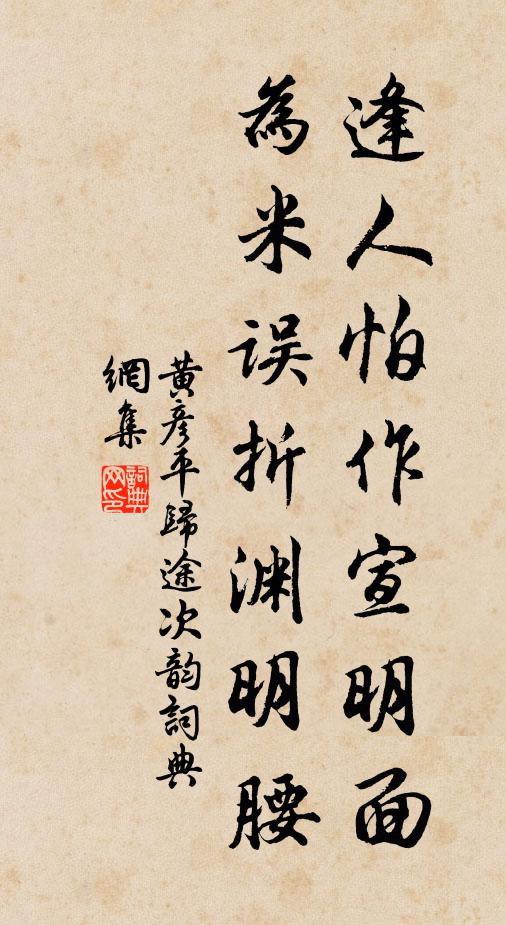 逢人怕作宣明面
為米误折渊明腰
黄彦平歸途次韵詞典
網集
詞典網印